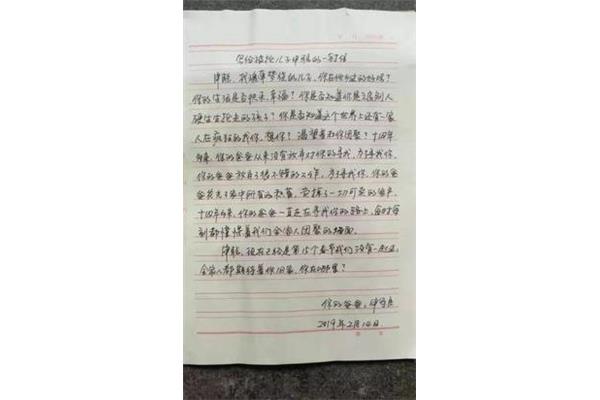 写给被抢儿子申聪的一封信
申聪,我魂牵梦绕的儿子,你在他乡过的好吗?
你的生活是否快乐、幸福?你是否知道你是被别人
硬生生抢走的孩子?你是否知道这个世界上还有一家
人在疯狂的找你、想你?渴望着和你团聚?十四年
多来,你的爸爸从来没有放弃对你的寻找,为了寻找你,
你的爸爸放弃了很不错的工作,为了寻找你,你的爸
爸花光了家中所有的积蓄,卖掉了一切可卖的家产,
十四年多来,你的爸爸一直走在寻找你的路上,每时每
刻都憧憬着我们全家人团聚的场面。
申聪,现在已经是第15个春节我们没有一起过,
全家人都期待着你回家,你在哪里?
你的爸爸:申军良
2019年2月14日